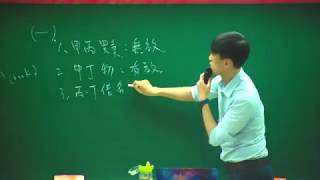 (一)
1. 甲丙買賣:無效
2. 甲丁物:有效
3. 丙丁借名